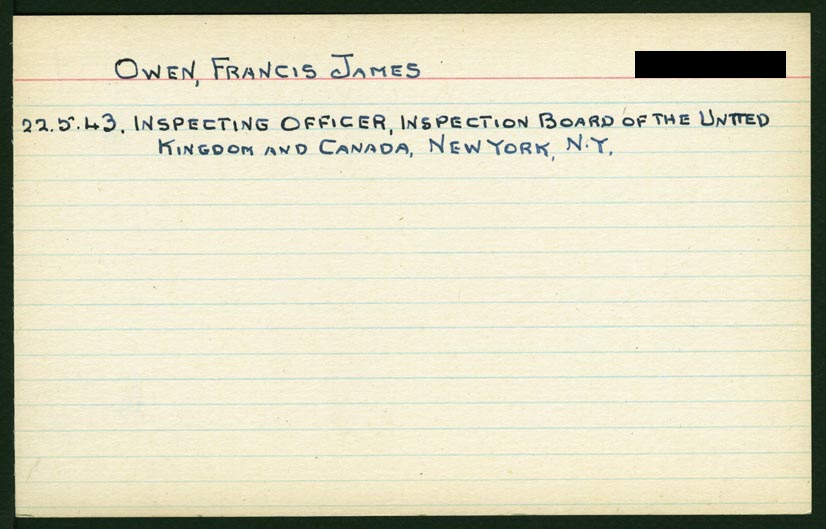 OWEN, FRANCIS JAMES
22.5.43. INSPECTING OFFICER, INSPECTION BOARD OF THE UNITED
KINGDOM AND CANADA, NEW YORK, N.Y.